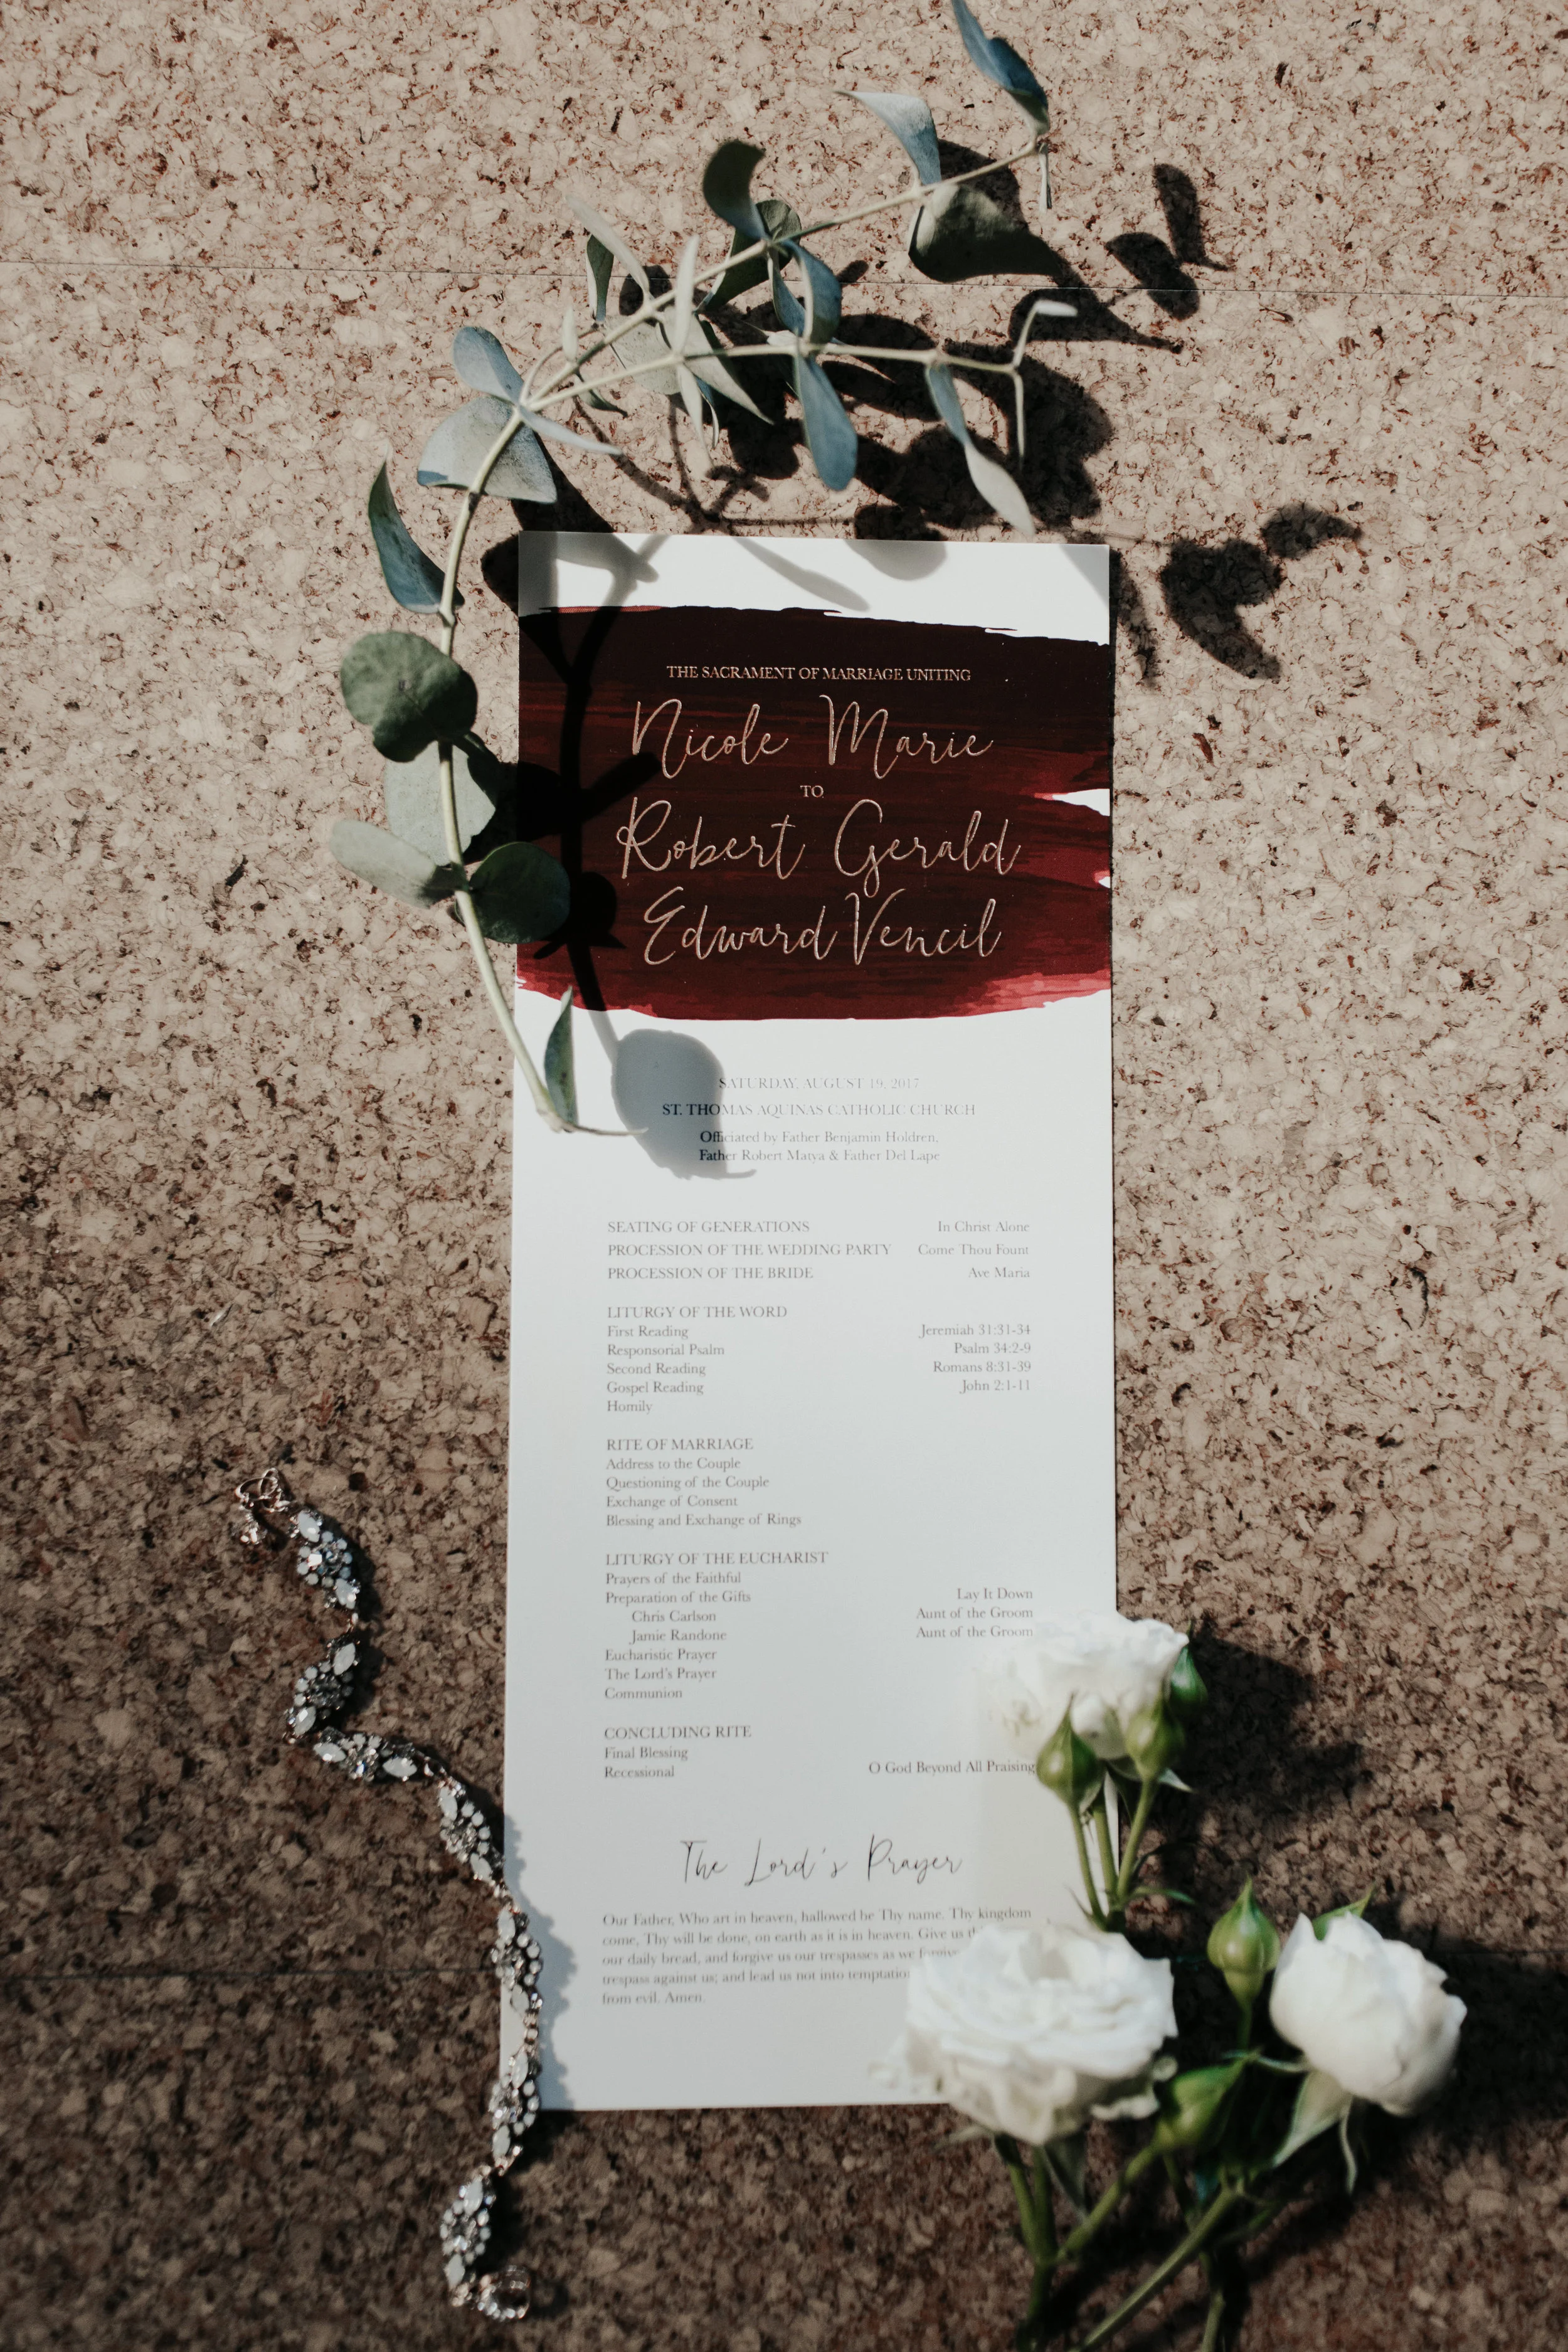 THE SACRAMENT OF MARRIAGE UNITING
Nicole Marie
TO
Robert Gerald
Edward Vencil
SATURDAY, AUGUST 19, 2017
ST. THOMAS AQUINAS CATHOLIC CHURCH
Officiated by Father Benjamin Holdren,
Father Robert Matya & Father Del Lape
SEATING OF GENERATIONS In Christ Alone
PROCESSION OF THE WEDDING PARTY Come Thou Fount
PROCESSION OF THE BRIDE Ave Maria
LITURGY OF THE WORD
First Reading Jeremiah 31:31-34
Responsorial Psalm Psalm 34:2-9
Second Reading Romans 8:31-39
Gospel Reading John 2:1-11
Homily
RITE OF MARRIAGE
Address to the Couple
Questioning of the Couple
Exchange of Consent
Blessing and Exchange of Rings
LITURGY OF THE EUCHARIST
Prayers of the Faithful
Preparation of the Gifts Lay It Down
Chris Carlson Aunt of the Groom
Jamie Randone Aunt of the Groom
Eucharistic Prayer
The Lord's Prayer
Communion
CONCLUDING RITE
Final Blessing
Recessional O God Beyond All Praising
The Lord's Prayer
Our Father, Who art in heaven, hallowed be Thy name. Thy kingdom
come, Thy will be done, on earth as it is in heaven. Give us
our daily bread, and forgive us our trespasses as we
trespass against us; and lead us not into
from evil. Amen.